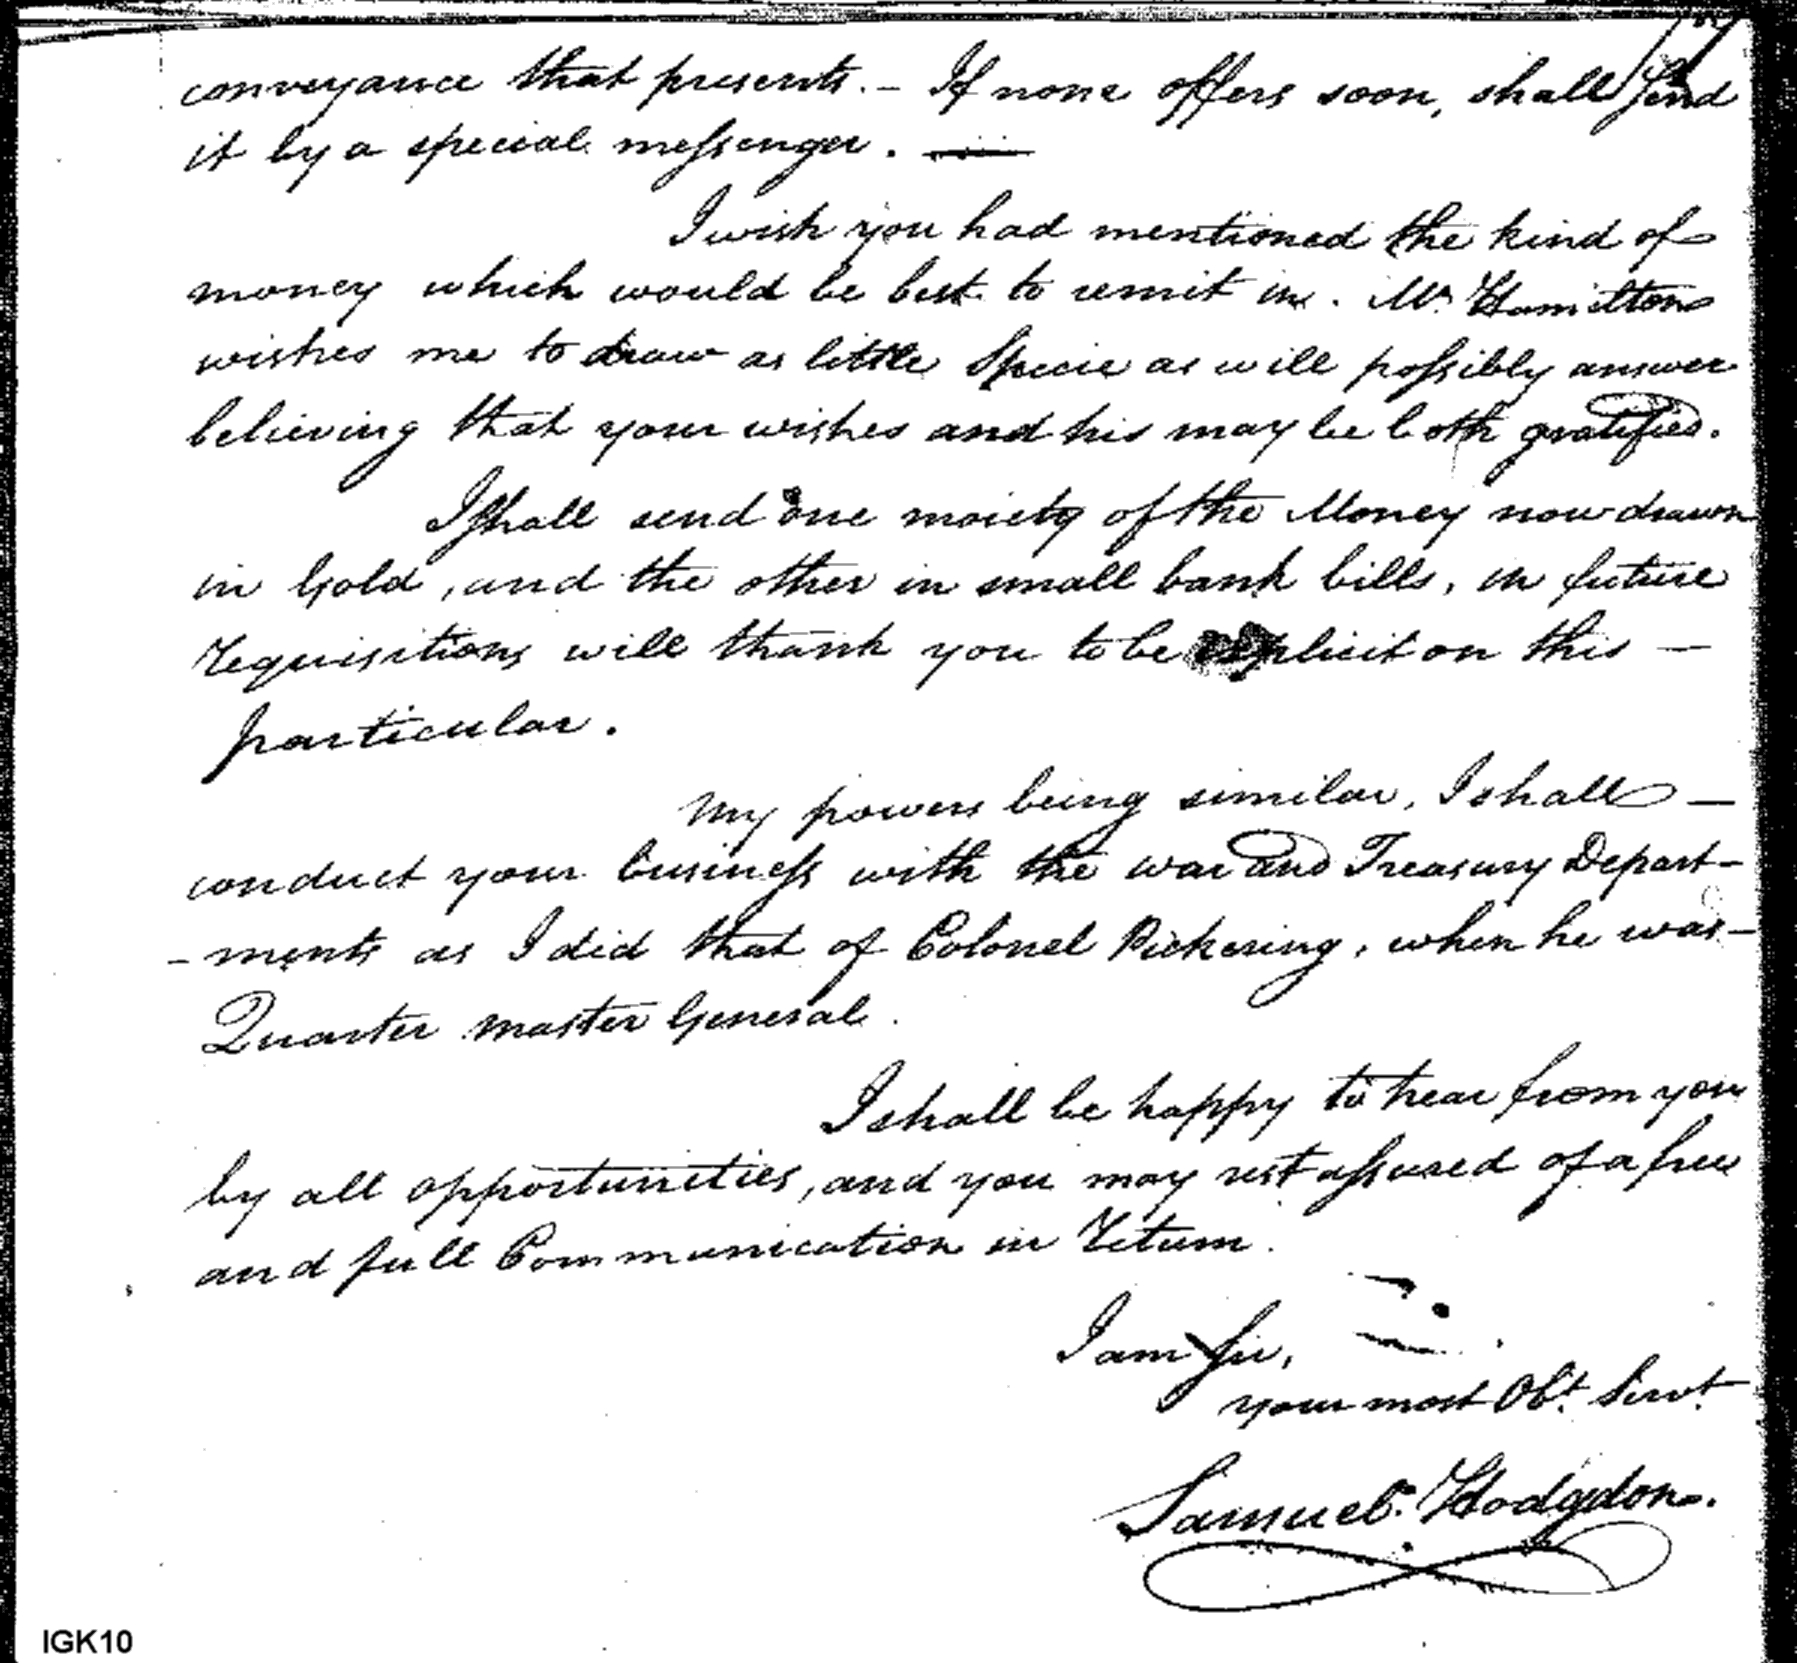 conveyance that presents. – If none offers soon, shall send
it by a special messenger. —
I wish you had mentioned the kind of
money which would be best to remit in. Mr. Hamilton
wishes me to draw as little Specie as will possibly answer
believing that your wishes and his may be both gratified.
I shall send one moiety of the Money now drawn
in Gold, and the other in small bank bills, in future
requisitions will thank you to be explicit on this –
particular.
My powers being similar, I shall –
conduct your business with the war and Treasury Depart-
-ments as I did that of Colonel Pickering, when he was –
Quarter master General.
I shall be happy to hear from you
by all opportunities, and you may rest assured of a free
and full Communication in return.
I am Sir,
your most Obt. Servt.
Samuel. Hodgdon.
IGK10